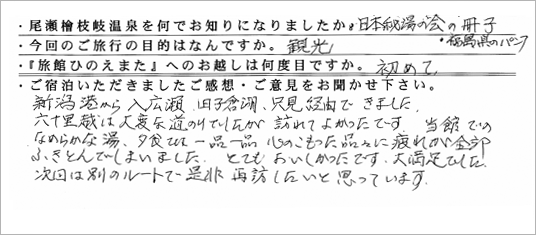 ・尾瀬檜枝岐温泉を何でお知りになりましたか。日本秘湯の会の冊子
・福島県のパンフ
・今回のご旅行の目的はなんですか。観光
・『旅館ひのえまた』へのお越しは何度目ですか。初めて
・ご宿泊いただきましたご感想・ご意見をお聞かせ下さい。
新潟港から入広瀬、田子倉湖、只見経由できました。
六十里越は大変な道のりでしたが訪れてよかったです。当館での
なめらかな湯、夕食は一品一品心のこもった品々に疲れが全部
ふきとんでしまいました。とてもおいしかったです。大満足でした。
次回は別のルートで是非再訪したいと思っています。